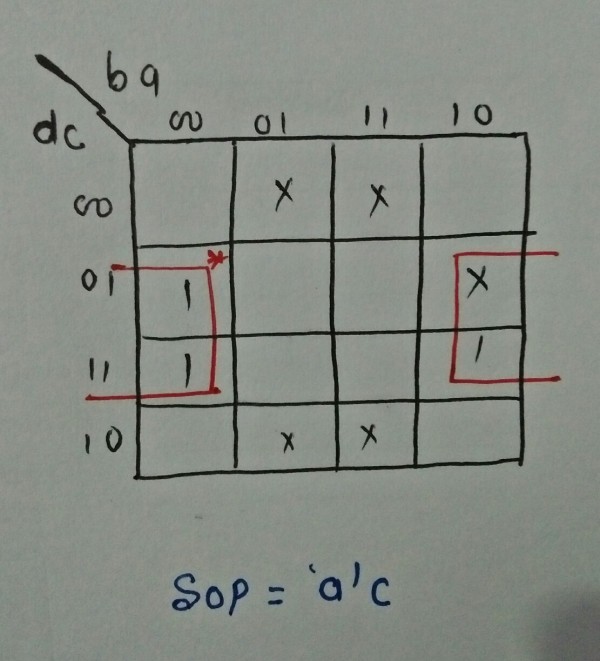 ba
dc 00 01 11 10
00 X X
01 1 * X
11 1 1
10 x x
SOP = a'c